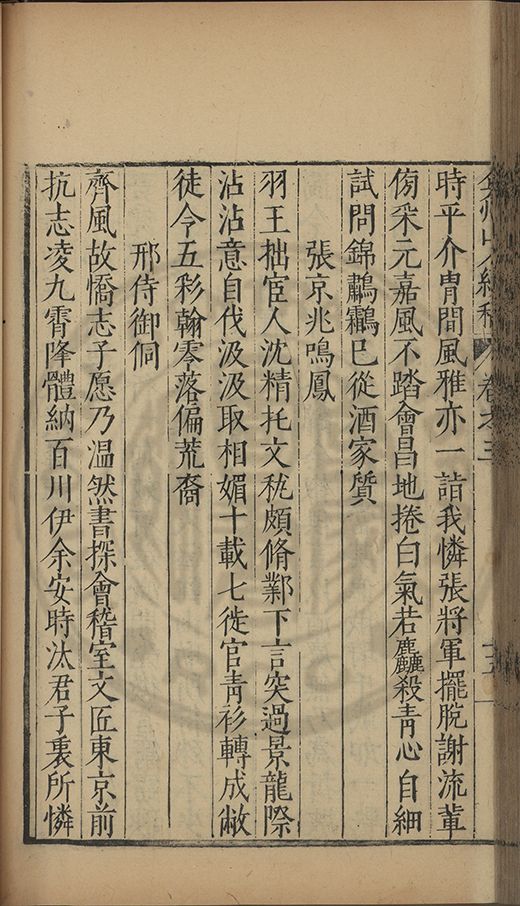 弇州山人續稿 卷之三 十五
時平介冑間風雅亦一詣我憐張將軍擺脫謝流輩
傍采元嘉風不踏會昌地捲白氣若麤殺青心自細
試問錦鸘鸘巳從酒家質
張京兆鳴鳳
羽王拙宦人沈精托文秇頗脩鄴下言突過景龍際
沾沾意自伐汲汲取相媚十載七徙官青衫轉成敝
徒令五彩翰零落偏荒裔
邢侍御侗
齊風故憍志子愿乃溫然書探會稽室文匠東京前
抗志凌九霄降體納百川伊余安時汰君子裏所憐